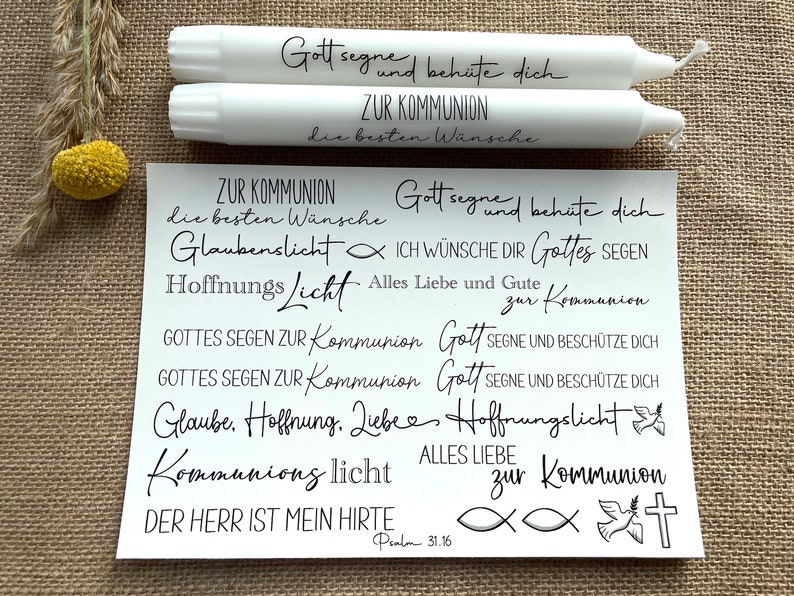 Gott segne
und behüte dich
ZUR KOMMUNION
die besten Wünsche
ZUR KOMMUNION
die besten Wünsche
Gott segne
und behüte dich
Glaubenslicht
ICH WÜNSCHE DIR Gottes SEGEN
Hoffnungs Licht
Alles Liebe und Gute
zur Kommunion
GOTTES SEGEN ZUR Kommunion
Gott SEGNE UND BESCHÜTZE DICH
GOTTES SEGEN ZUR Kommunion
Gott SEGNE UND BESCHÜTZE DICH
Glaube, Hoffnung, Liebe
Hoffnungslicht
Kommunions licht
ALLES LIEBE
zur Kommunion
DER HERR IST MEIN HIRTE
Psalm 31.16